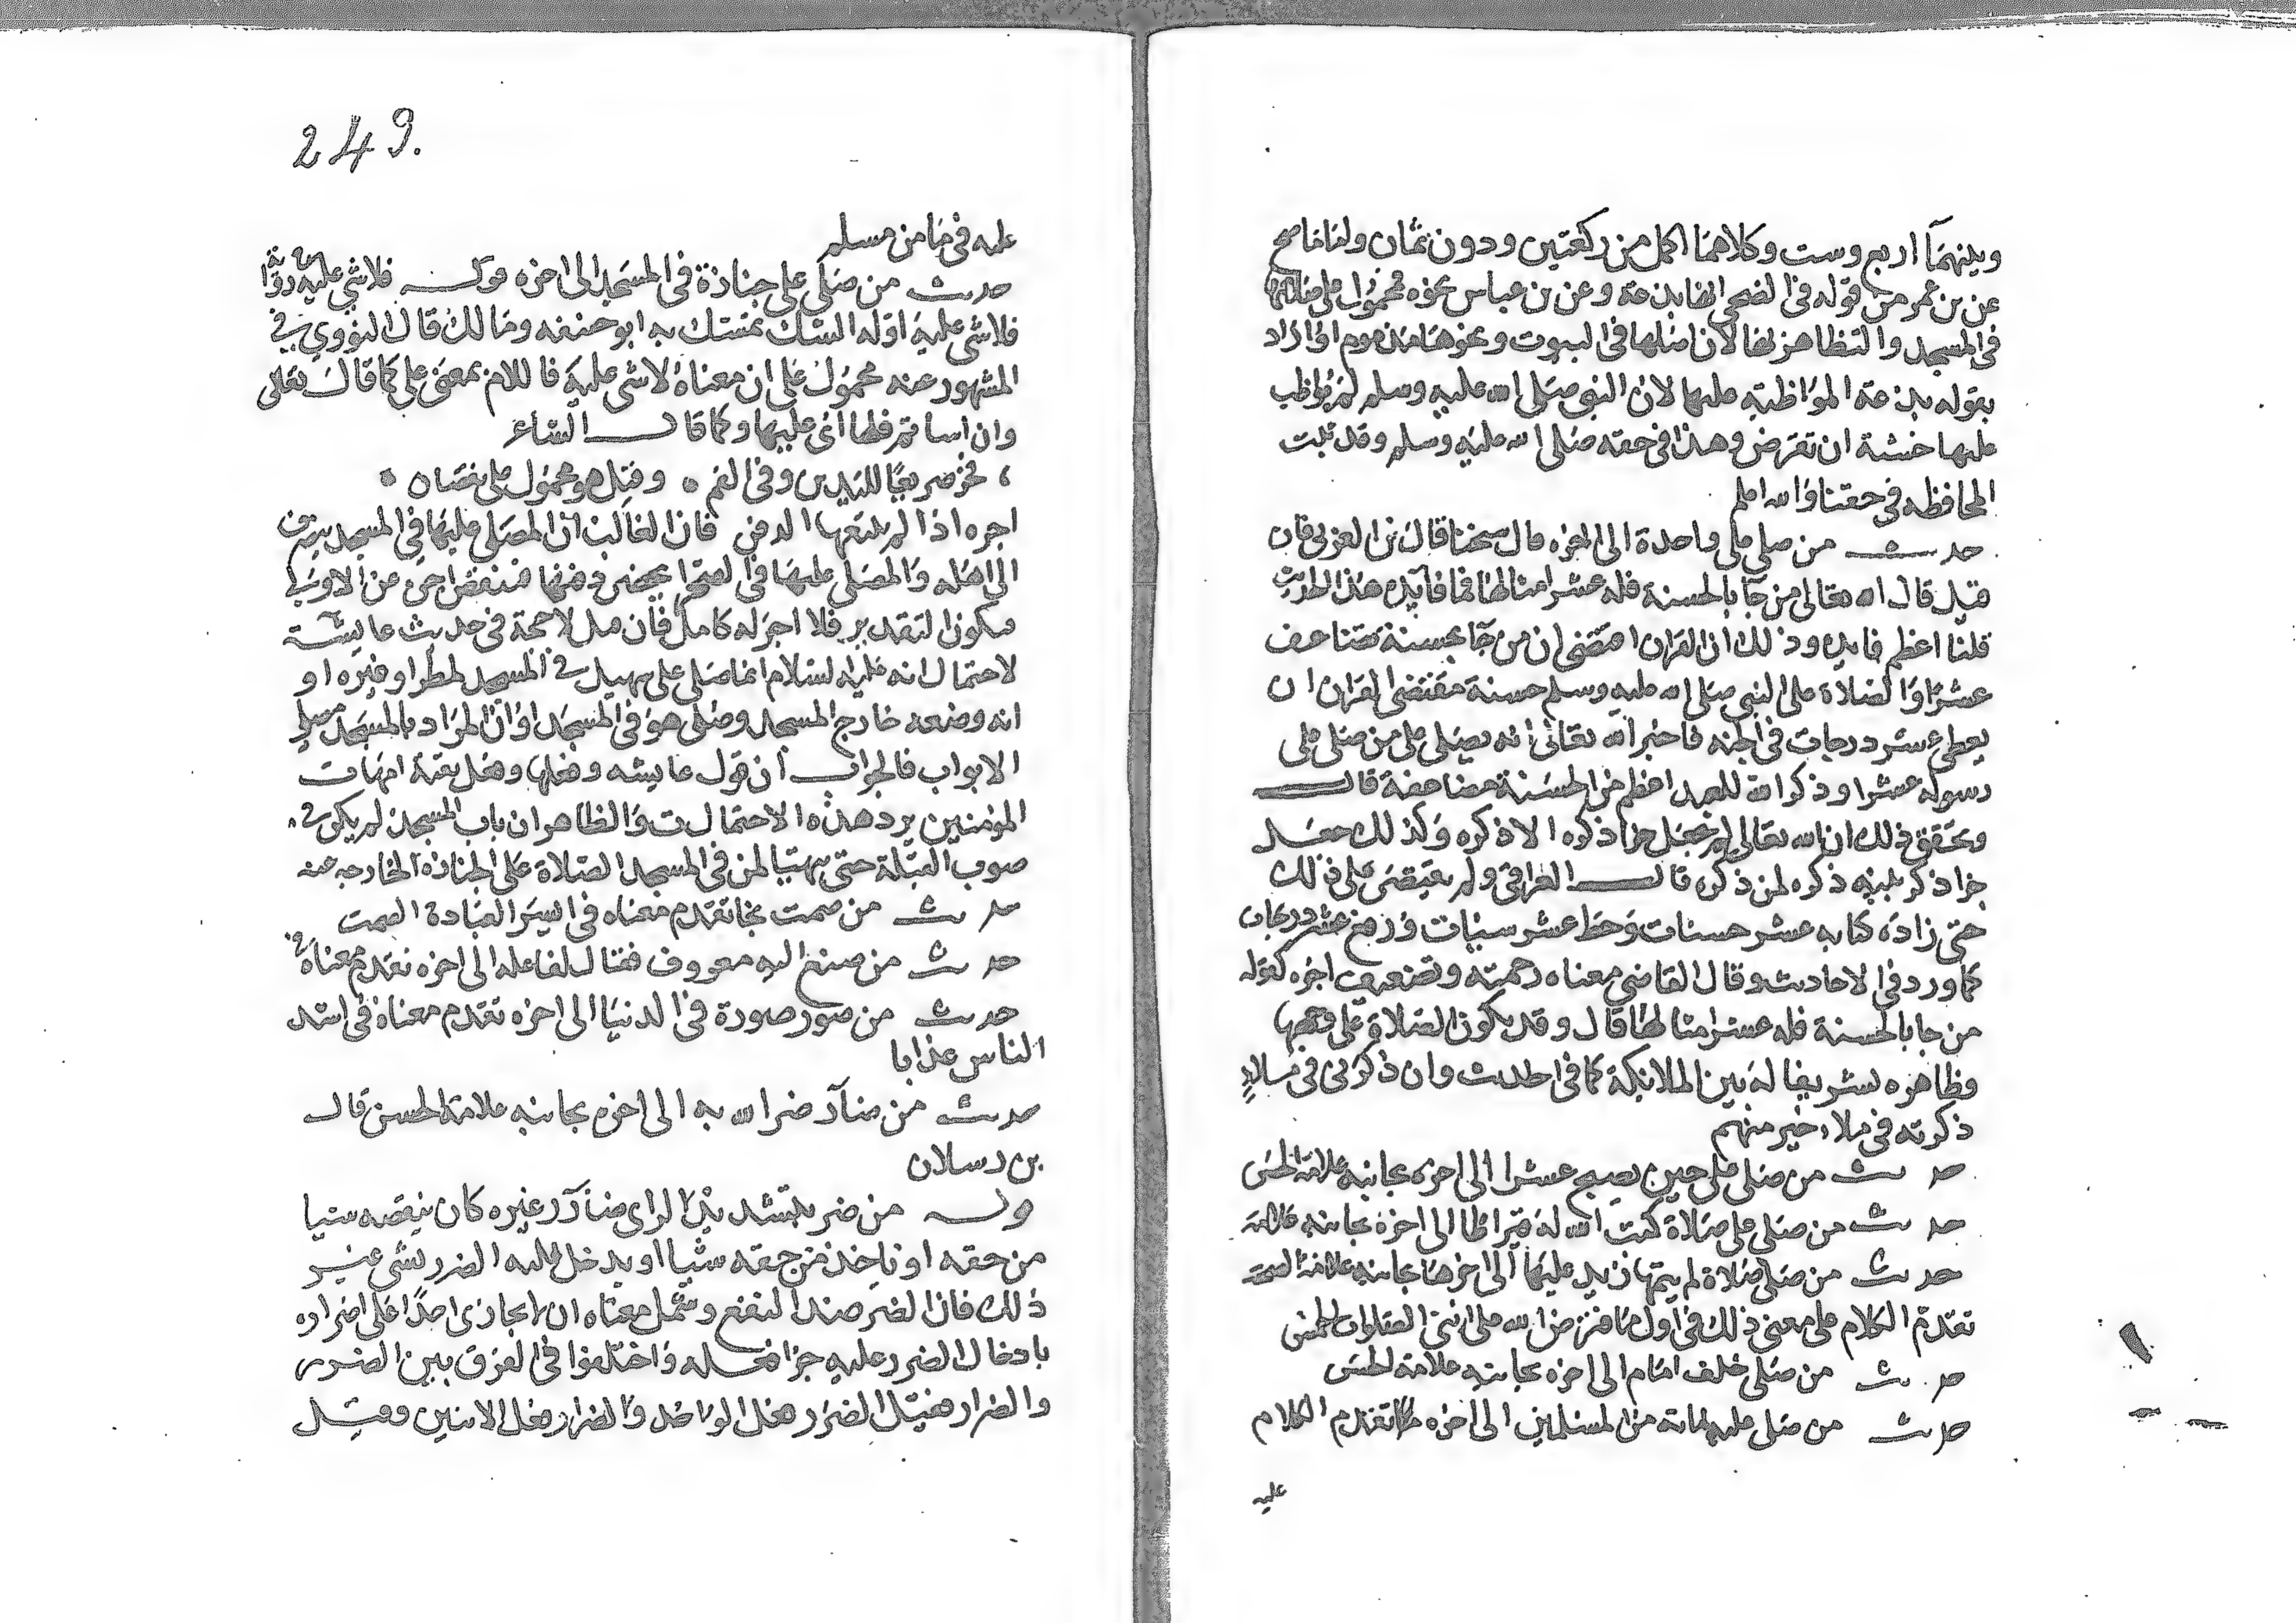 وبينهما اربع وست وكلاهما اكمل من ركعتين ودون ثمان واما ما صح
عن بن عمر من قوله في الضحى انها بدعة وعن بن عباس نحوه محمول على صلاتها
في المسجد والتظاهر بها لان اصلها في البيوت ونحوها مذموم او اراد
بقوله بدعة المواظبة عليها لان النبي صلى الله عليه وسلم لم يواظب
عليها خشية ان تفرض وهذا في حقه صلى الله عليه وسلم وقد ثبت
المحافظه في حقنا والله اعلم
حديث من صلى على واحدة الى اخره قال شيخنا قال بن العربي فان
قيل قال الله تعالى من جا بالحسنة فله عشر امثالها فما فايدة هذا الحديث
قلنا اعظم فايدة وذلك ان القران اقتضى ان من جا بحسنة تضاعف
عشرا والصلاة على النبي صلى الله عليه وسلم حسنة مقتضى القران ان
يعطى عشر درجات في الجنه فاخبر الله تعالى انه يصلي على من صلى على
رسوله عشرا وذكر الله للعبد اعظم من الحسنة مضاعفة قال
وتحقق ذلك ان الله تعالى لم يجعل جزا ذكره الا ذكره وكذلك جعل
جزا ذكر نبيه ذكره لمن ذكره قال العراقي ولم يقتصر على ذلك
حتى زاده كتابه عشر حسنات وحط عشر سيئات ورفع عشر درجات
كما ورد في الاحاديث وقال القاضي معناه رحمته وتضعيف اجره كقوله
من جا بالحسنة فله عشر امثالها قال وقد يكون الصلاة على وجهها
وظاهره تشريفا له بين الملائكة كما في الحديث وان ذكرني في ملاء
ذكرته في ملاء خير منهم
حديث من صلى علي حين يصبح عشرا الى اخره بجانبه علامة الحسن
حديث من صلى على صلاة كتب الله له قيراطا الى اخره بجانبه علامة
حديث من صلى صلاة لم يتمها زيد عليها الى اخرها بجانبه علامة الصحة
تقدم الكلام على معنى ذلك في اول ما افترض الله على امتي الصلوات الخمس
حديث من صلى خلف امام الى اخره بجانبه علامة الحسن
حديث من صلى عليه مائة من المسلمين الى اخره تقدم الكلام
عليه
249.
عليه في ما من مسلم
حديث من صلى على جنازة في المسجد الى اخره قوله فلا شي عليه
فلا شي عليه اوله الشك تمسك به ابو حنيفه ومالك قال النووي في
المشهور عنه محمول على ان معناه لا شي عليه فاللام بمعنى على كما قال تعالى
وان اساتم فلها اي عليها وكما قال الشاعر
، فخر صريعا لليدين وفي الفم ٠ وقيل هو محمول على نقصان ٠
اجره اذا لم يتبعها الدفن فان الغالب ان المصلى عليها في المسجد ينصرف
الى اهله والمصلى عليها في الصحرا يحضر دفنها فنقص اجر من الاول
فيكون التقدير فلا اجر له كامل فان قيل لا حجة في حديث عايشة
لاحتمال انه عليه السلام انما صلى على سهيل في المسجد لمطر او غيره او
انه وضعه خارج المسجد وصلى هو في المسجد او ان المراد بالمسجد مصلى
الابواب فالجواب ان قول عايشه وفعلها وفعل بقية امهات
المؤمنين يرد هذه الاحتمالات والظاهر ان باب المسجد لم يكن في
صوب القبلة حتى يتهيا لمن في المسجد الصلاة على الجنازة الخارجه عنه
حديث من صمت نجا تقدم معناه في ايسر العبادة الصمت
حديث من صنع اليه معروف فقال لفاعله الى اخره تقدم معناه في
حديث من صور صورة في الدنيا الى اخره تقدم معناه في اشد
الناس عذابا
حديث من ضار ضر الله به الى اخره بجانبه علامة الحسن قال
بن رسلان
قوله من ضر بتشديد الراي ضار غيره كان ينقصه شيا
من حقه او ياخذ من حقه شيا او يدخل عليه الضرر بشي غير
ذلك فان الضر ضد النفع ويحتمل معناه ان لا يجازى احدا على اضراره
بادخال الضرر عليه جزا فعله واختلفوا في الفرق بين الضرر
والضرار فقيل الضرر فعل الواحد والضرار فعل الاثنين وقيل